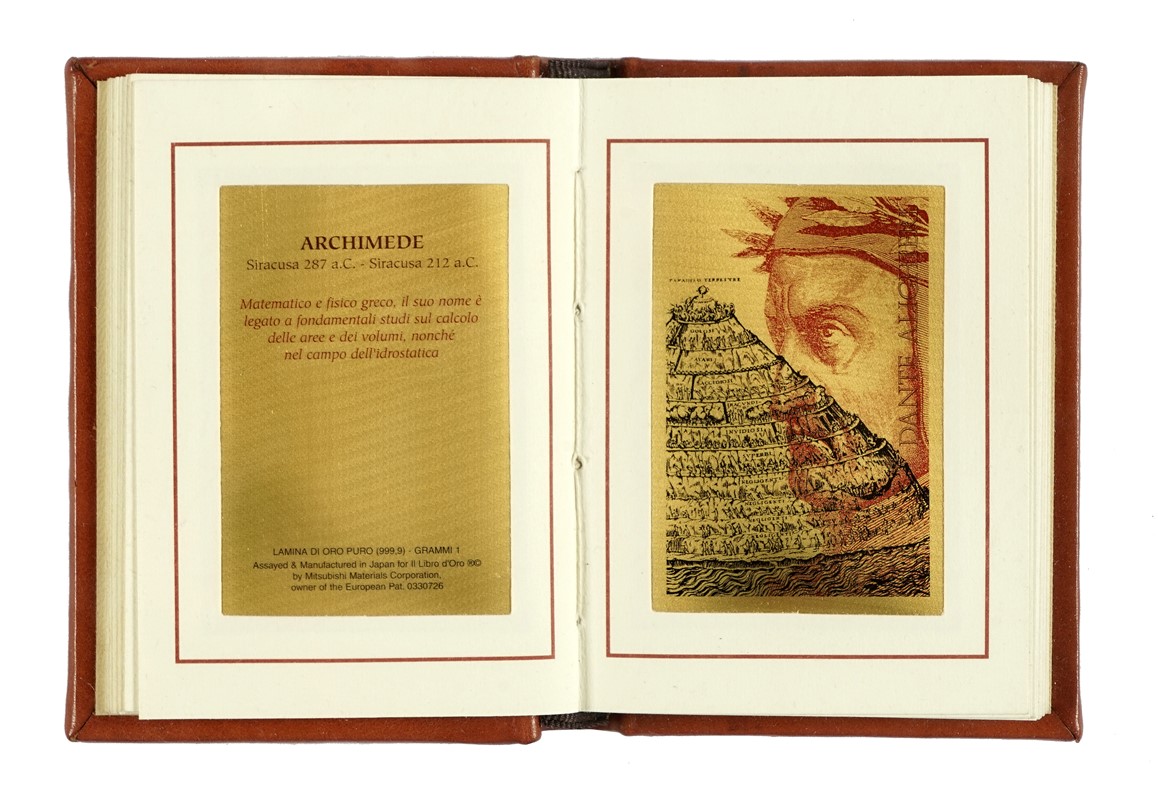 ARCHIMEDE
Siracusa 287 a.C. - Siracusa 212 a.C.
Matematico e fisico greco, il suo nome è
legato a fondamentali studi sul calcolo
delle aree e dei volumi, nonché
nel campo dell'idrostatica
LAMINA DI ORO PURO (999,9) - GRAMMI 1
Assayed & Manufactured in Japan for Il Libro d'Oro ®©
by Mitsubishi Materials Corporation,
owner of the European Pat. 0330726
PARADISO TERRESTRE
GOLOSI
AVARI
ACCIDIOSI
IRACVNDI
INVIDIOSI
SVPERBI
NEGLIGENTI
NEGLIGENTI
NEGLIGENTI
DANTE ALIGHIERI